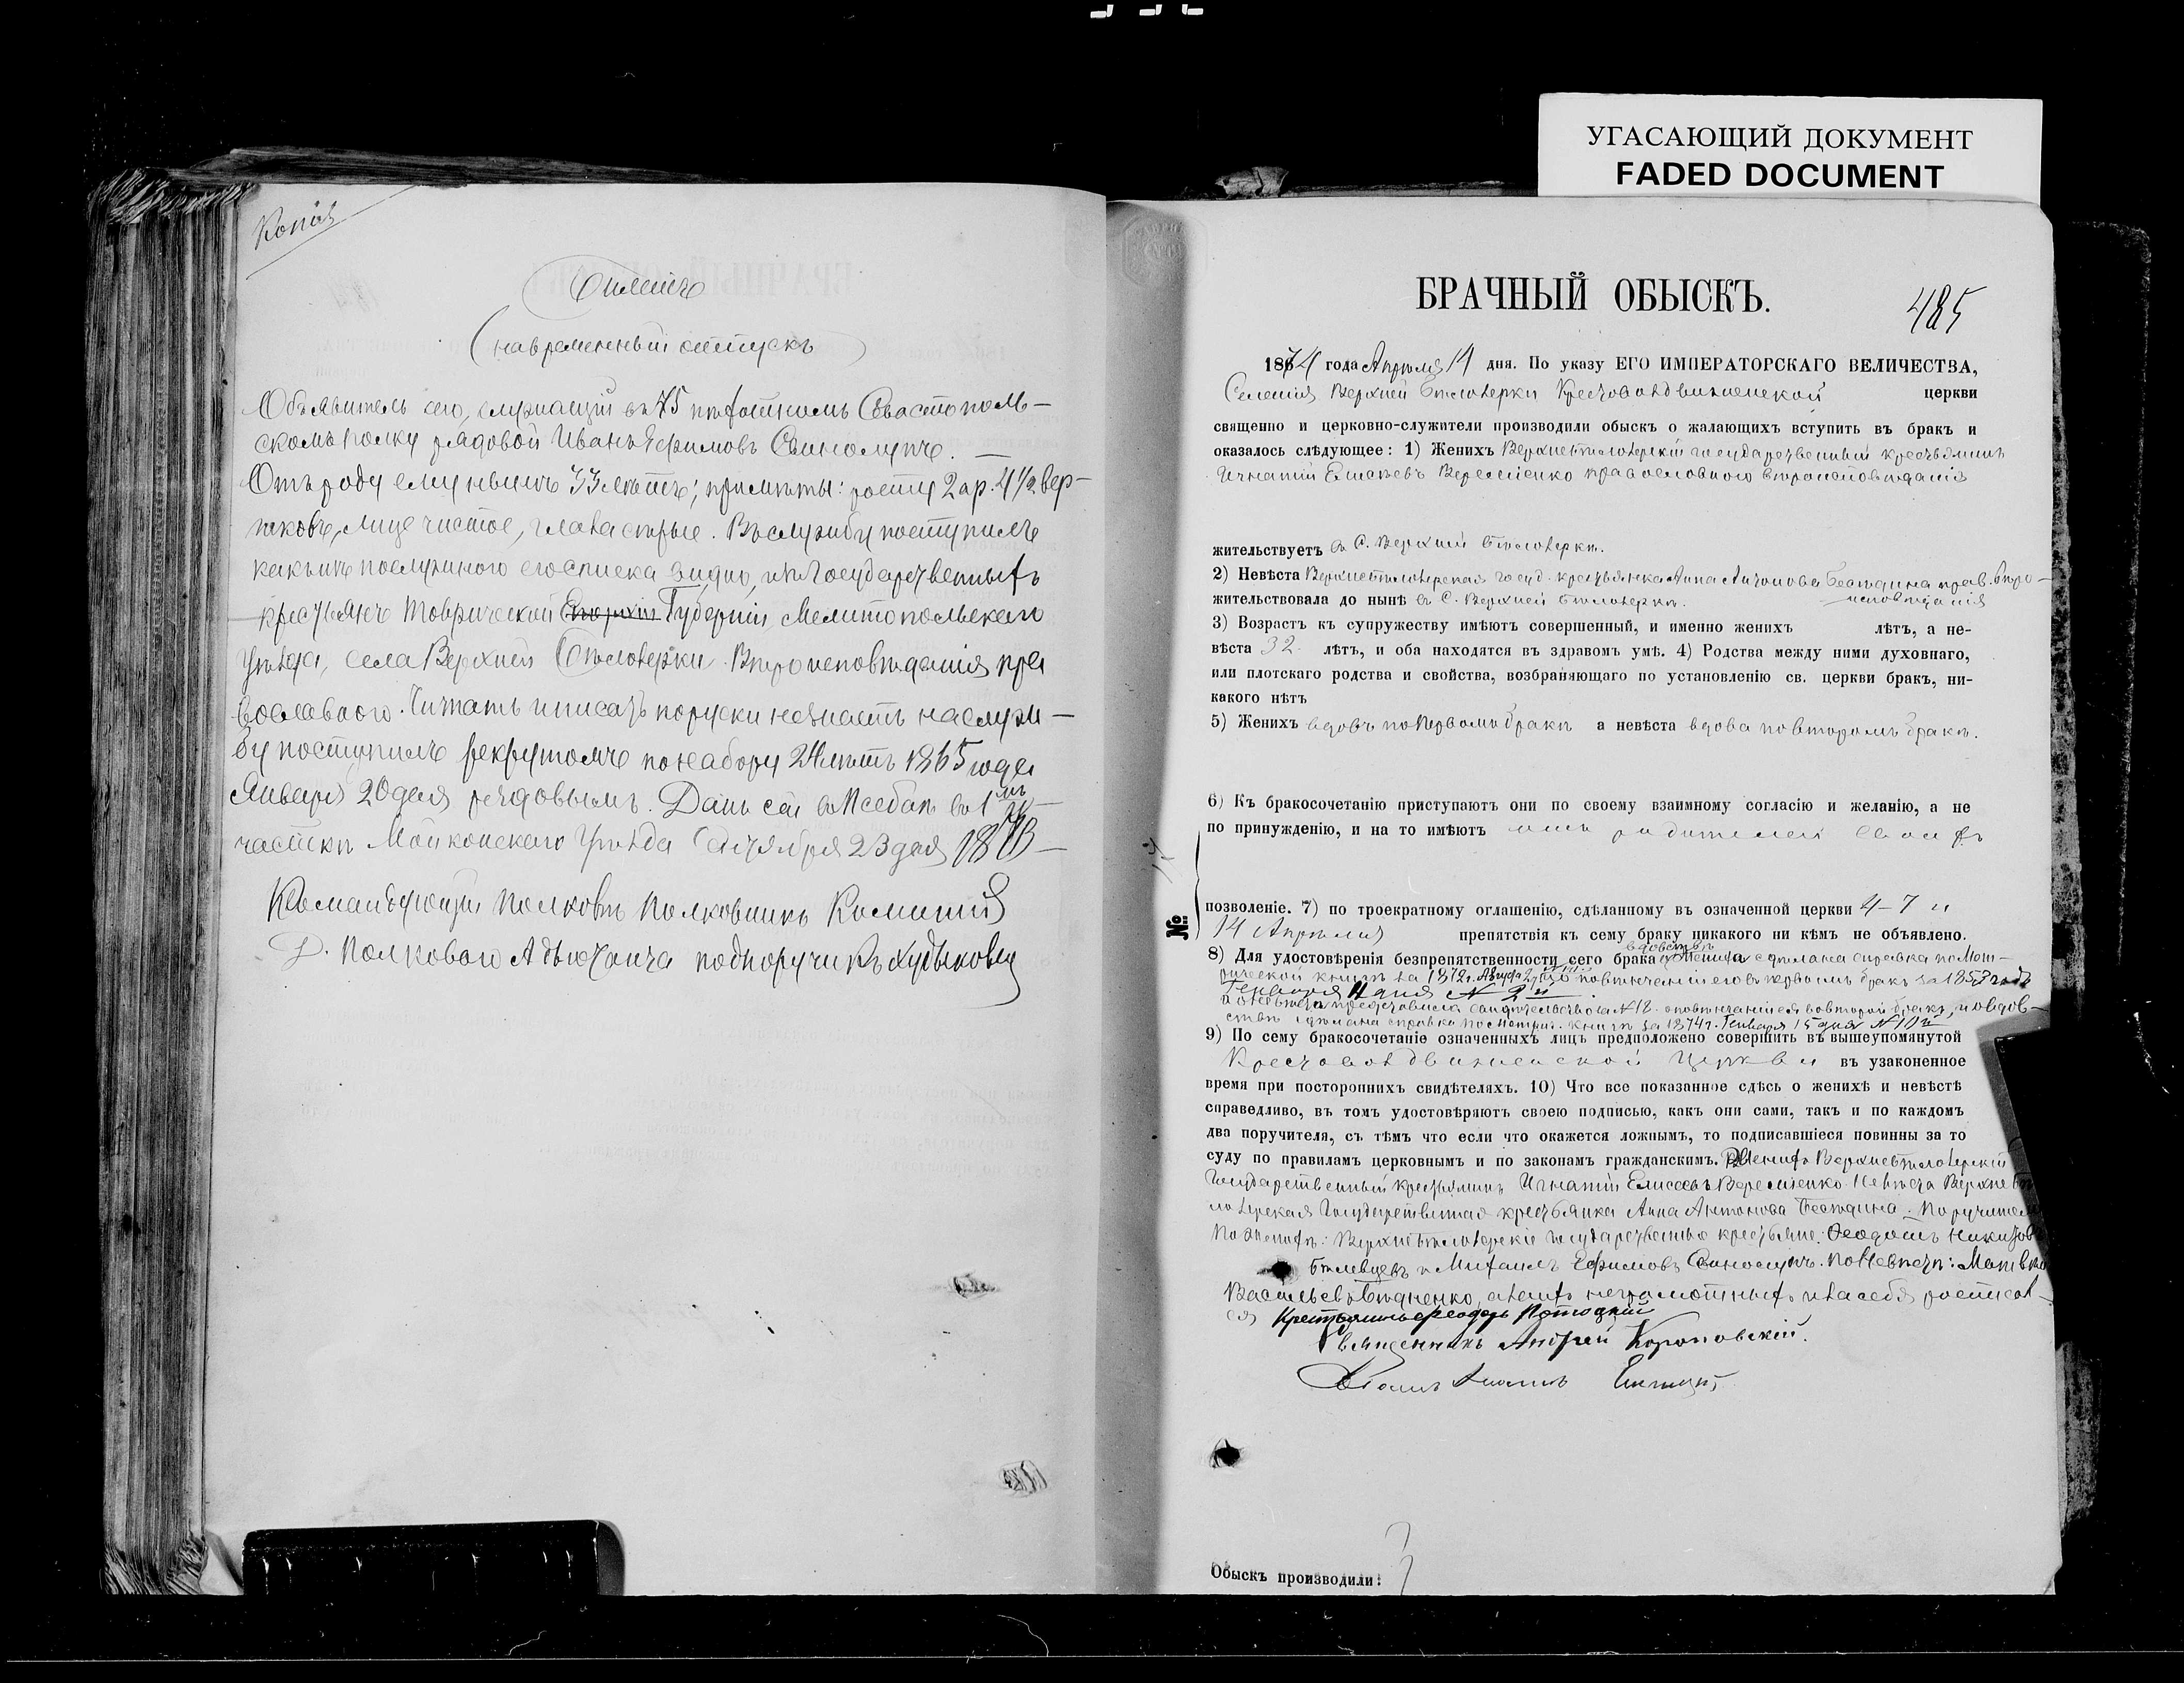 УГАСАЮЩИЙ ДОКУМЕНТ
FADED DOCUMENT
Копія
Билетъ
(на временный отпускъ)
Объявитель сего, служащій въ 75 пѣхотномъ Севастополь-
скомъ полку рядовой Иванъ Ефимовъ Синолупъ. —
Отъ роду ему нынѣ 33 лѣтъ; примѣты: росту 2 ар. 4 1/2 вер-
шковъ, лице чистое, глаза сѣрые. Въ службу поступилъ
какъ изъ послужного его списка видно, изъ Государственныхъ
крестьянъ Таврической Губерніи Мелитопольскаго
уѣзда, села Верхней Бѣлозерки. Вѣроисповѣданія пра
вославного. Читать и писать по руски не знаетъ на служ-
бу поступилъ рекрутомъ по набору 24 лѣтъ 1865 года
Января 20 дня рядовымъ. Данъ сей въ Псебаѣ въ 1мъ
участкѣ Майкопскаго Уѣзда Октября 23 дня 1873
Командующій полкомъ Полковникъ
Д. Полковаго Адъютанта подпоручикъ
БРАЧНЫЙ ОБЫСКЪ.
485
1874 года Апрѣля 14 дня. По указу ЕГО ИМПЕРАТОРСКАГО ВЕЛИЧЕСТВА,
Селенія Верхней Бѣлозерки Крестовоздвиженской церкви
священно и церковно-служители производили обыскъ о жалающихъ вступить въ бракъ и
оказалось слѣдующее: 1) Женихъ Верхнебѣлозерскій государственный крестьянинъ
Игнатій Елисѣевъ Веремѣенко православного вѣроисповѣданія
жительствуетъ въ С. Верхней Бѣлозеркѣ.
2) Невѣста Верхнебѣлозерская госуд. крестьянка Анна Антонова Бесѣдина прав. вѣро-
жительствовала до нынѣ въ С. Верхней Бѣлозеркѣ. исповѣданія
3) Возрастъ къ супружеству имѣютъ совершенный, и именно женихъ лѣтъ, а не-
вѣста 32 лѣтъ, и оба находятся въ здравомъ умѣ. 4) Родства между ними духовнаго,
или плотскаго родства и свойства, возбраняющаго по установленію св. церкви бракъ, ни-
какого нѣтъ
5) Женихъ вдовъ по первомъ бракѣ а невѣста вдова по второмъ бракѣ.
6) Къ бракосочетанію приступаютъ они по своему взаимному согласію и желанію, а не
по принужденію, и на то имѣютъ родителей своихъ
№
позволеніе. 7) по троекратному оглашенію, сдѣланному въ означенной церкви 4-7 и
14 Апрѣля препятствія къ сему браку никакого ни кѣмъ не объявлено.
вдовствѣ
8) Для удостовѣренія безпрепятственности сего брака о жениха сдѣлана справка по Мет-
рической книгѣ за 1872 г. Августа о повѣнчаніи его въ первомъ бракѣ за 1853 годъ
Генваря 11 дня № 2й
а невѣста представила свидѣтельство за № 12. о повѣнчаніи ея во второй бракъ, и о вдов-
ствѣ сдѣлана справка по Метрич. книгѣ за 1874 г. Генваря 15 дня № 10й
9) По сему бракосочетаніе означенныхъ лицъ предположено совершить въ вышеупомянутой
Крестовоздвиженской Церкви въ узаконенное
время при посторонпихъ свидѣтеляхъ. 10) Что все показанное сдѣсь о женихѣ и невѣстѣ
справедливо, въ томъ удостовѣряютъ своею подписью, какъ они сами, такъ и по каждомъ
два поручителя, съ тѣмъ что если что окажется ложнымъ, то подписавшіеся повинны за то
суду по правиламъ церковнымъ и по законамъ гражданскимъ. Женихъ Верхнебѣлозерскій
Государственный крестьянинъ Игнатій Елисѣевъ Веремѣенко. Невѣста Верхнебѣ
лозерская Государственная крестьянка Анна Антонова Бесѣдина. Поручители
По женихѣ: Верхнебѣлозерскіе государственные крестьяне: Ѳеодоръ
и Михаилъ Ефимовъ Синолупъ. По Невѣстѣ: Матвѣй
Васильевъ Бѣдненко, а за ихъ неграмотныхъ и за себя росписал-
ся Крестьянинъ Ѳеодоръ Потоцкій
Священникъ Андрей Короповскій.
Обыскъ производили: